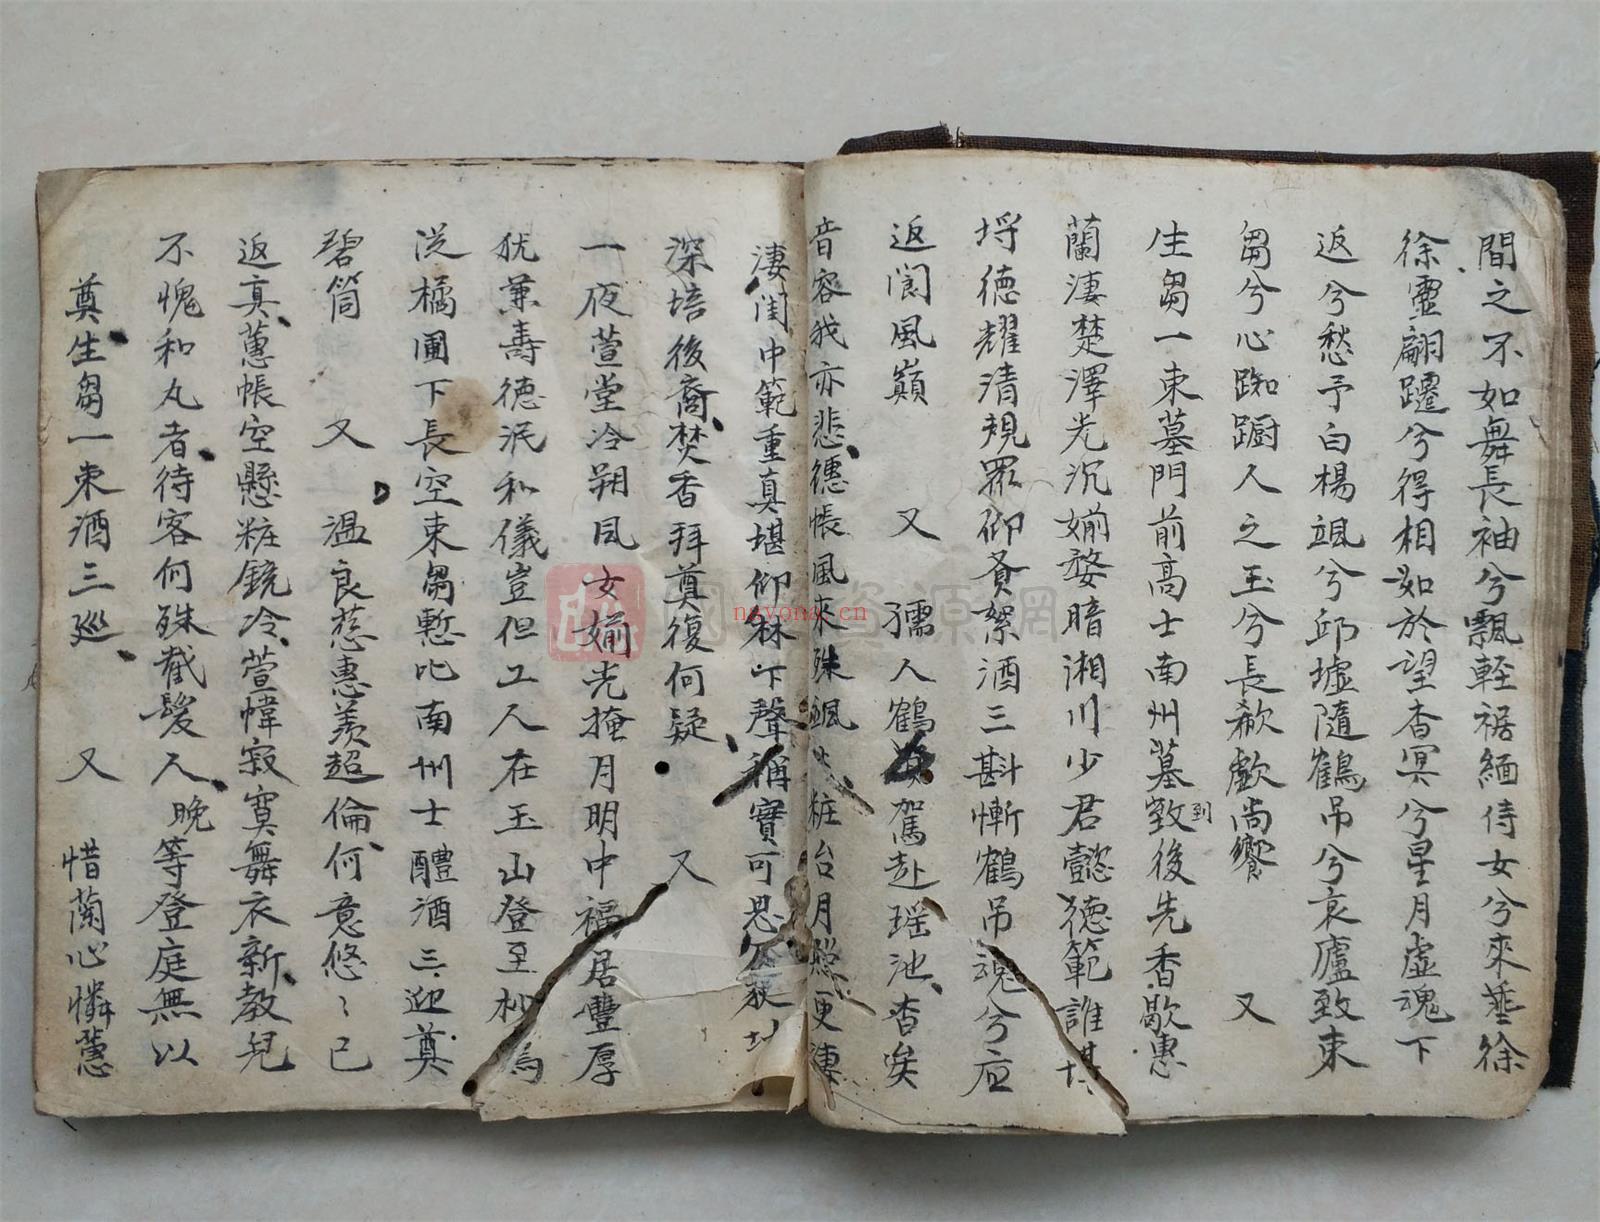 間之不如舞長袖兮飄輕裾緬侍女兮來葢徐
徐靈翩躚兮得相如於望杳冥兮星月虛魂下
返兮愁予白楊颯兮邱墟隨鶴吊兮哀廬致束
芻兮心踟蹰人之玉兮長欷歔尚饗　又
生芻一束墓門前高士南州墓致到後先香歇惠
蘭淒楚澤光沉婺暗湘川少君懿德範誰堪
埒德耀清規罕仰絮酒三斟慚鶴吊魂兮应
返閬風巔　又　孺人鶴駕赴瑶池杳唉
音容我亦悲繐帳風來殊颯粧台月照更淒
淒閨中範重真堪仰林下聲稱實可思荻
深培後裔焚香拜奠復何疑　又
一夜萱堂冷朔風女媊光掩月明中福居豐厚
犹兼壽德泯和儀豈但工人在玉山登至為
泛橘圃下長空束芻慙比南州士醴酒三迎奠
碧筒　又　温良慈惠羨超倫何意悠〻已
返真蕙帳空懸粧鏡冷萱幃寂寞舞衣新教兒
不愧和丸者待客何殊截髮人晚等登庭無以
奠生芻一束酒三廵　又　惜蘭心憐蕙
國學資源網
nayona.cn